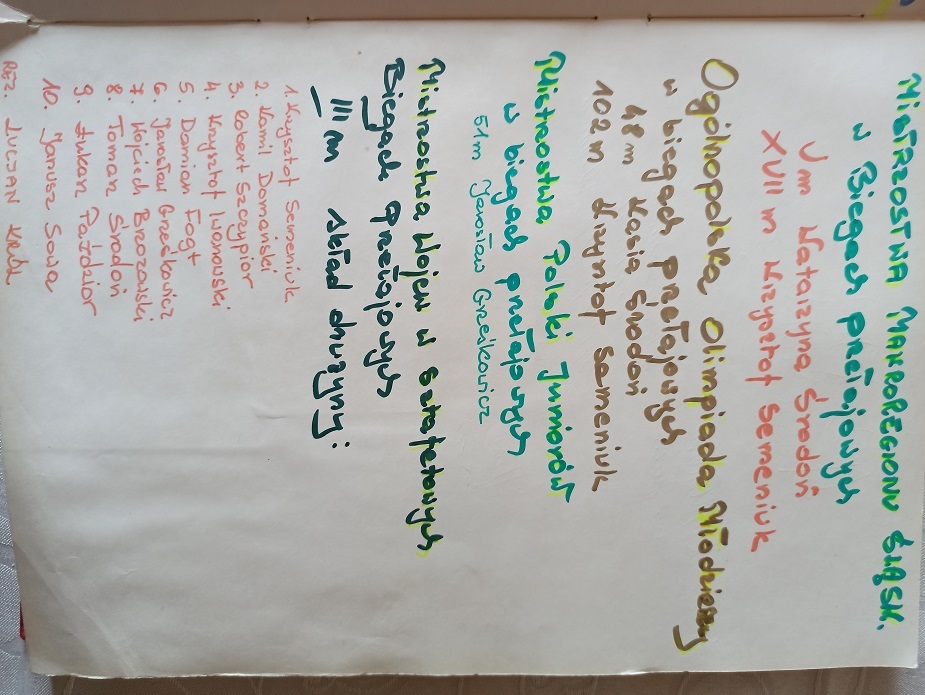 MISTRZOSTWA MAKROREGIONU ŚLĄSK.
w Biegach przełajowych
V m Katarzyna Środoń
XVII m Krzysztof Semeniuk
Ogólnopolska Olimpiada Młodzieży
w biegach przełajowych
48 m Kasia Środoń
102 m Krzysztof Semeniuk
Mistrzostwa Polski Juniorów
w biegach przełajowych
51 m Jarosław Greśkowicz
Mistrzostwa Wojew w sztafetowych
Biegach Przełajowych
III m skład drużyny:
1. Krzysztof Semeniuk
2. Kamil Domański
3. Robert Szczypior
4. Krzysztof Iwanowski
5. Damian Fogt
6. Jarosław Greśkowicz
7. Wojciech Brzozowski
8. Tomasz Środoń
9. Łukasz Paździor
10. Janusz Sowa
REZ. LUCJAN KRÓL